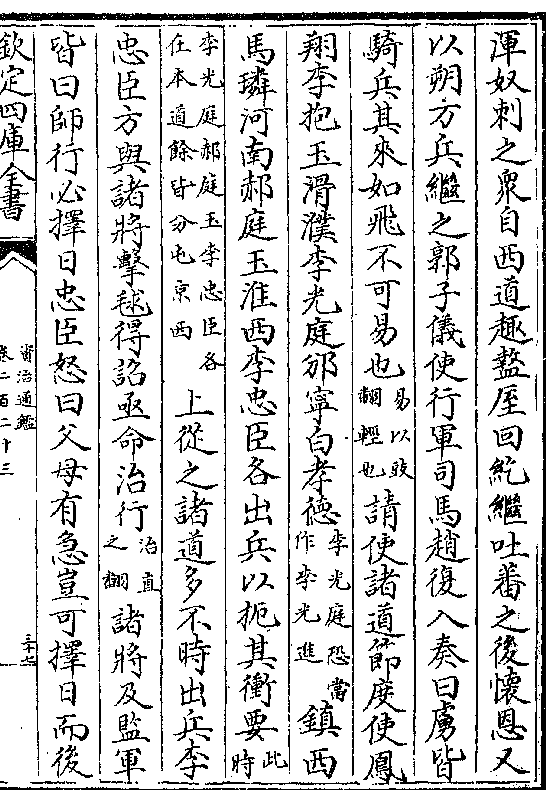 渾奴刺之衆自西道趣盩厔回紇繼吐蕃之後懷恩又
以朔方兵繼之郭子儀使行軍司馬趙復入奏曰虜皆
騎兵其來如飛不可易也易以豉翻輕也請使諸道節度使鳳
翔李抱玉滑濮李光庭邠寧白孝德李光庭恐當作李光進鎮西
馬璘河南郝庭玉淮西李忠臣各出兵以扼其衝要此時
李光庭郝庭玉李忠臣各仕本道餘皆分屯京西上從之諸道多不時出兵李
忠臣方與諸將擊毬得詔亟命治行治直之翻諸將及監軍
皆曰師行必擇日忠臣怒曰父母有急豈可擇日而後
欽定四庫全書
資治通鑑
卷二百二十三
三十七